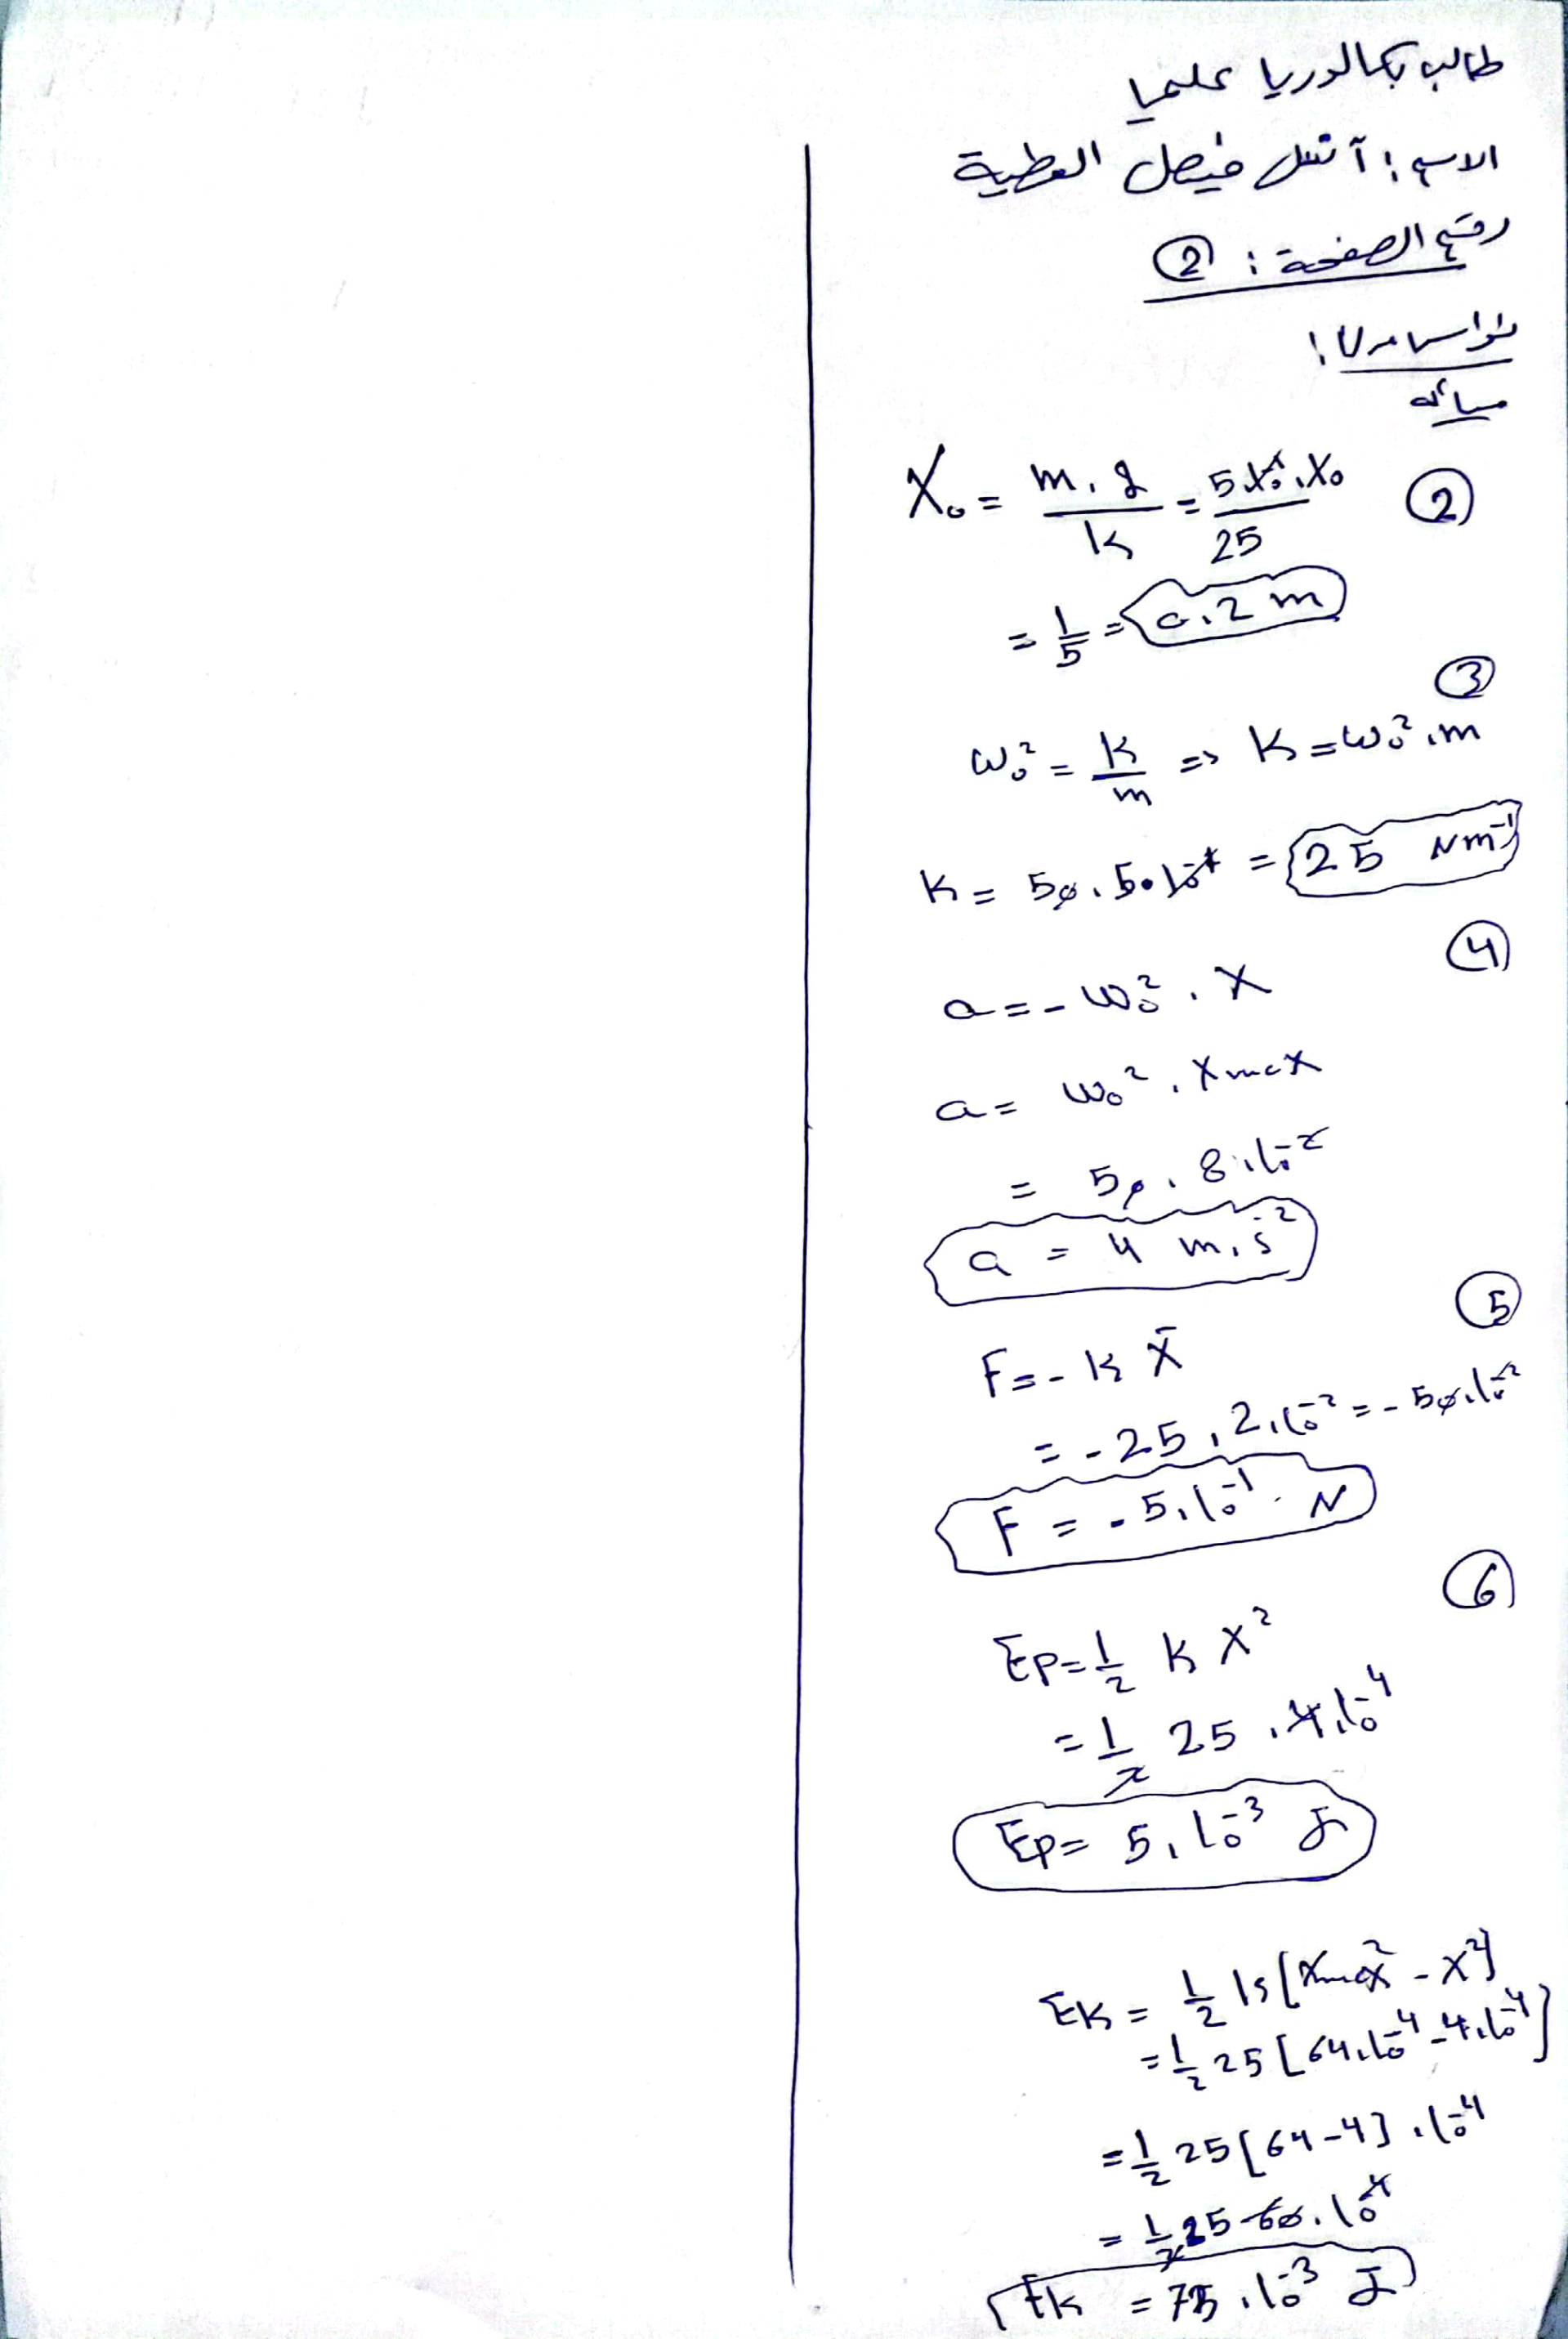 طالب بكالوريا علميا
الاسم : آنس فيصل العطية
رقم الصفحة : ②
نواس مرن :
مسألة
②
X₀ = m.g / k = 5.10⁻¹.10 / 25
= 1/5 = 0,2 m
③
ω₀² = k/m => k = ω₀².m
k = 50 . 5.10⁻¹ = 25 Nm⁻¹
④
a = - ω₀² . x
a = ω₀² . Xmax
= 50 . 8.10⁻²
a = 4 m.s⁻²
⑤
F = - k x̄
= - 25 . 2.10⁻² = - 50.10⁻²
F = - 5.10⁻¹ . N
⑥
Ep = 1/2 k x²
= 1/2 25 . 4.10⁻⁴
Ep = 5.10⁻³ J
Ek = 1/2 k [Xmax² - x²]
= 1/2 25 [64.10⁻⁴ - 4.10⁻⁴]
= 1/2 25 [64-4] .10⁻⁴
= 1/2 25 60.10⁻⁴
Ek = 75.10⁻³ J